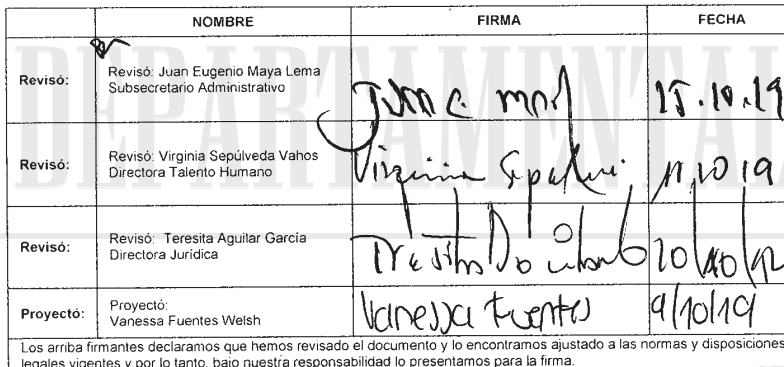 NOMBRE FIRMA FECHA
Revisó: Revisó: Juan Eugenio Maya Lema
Subsecretario Administrativo
15.10.19
Revisó: Revisó: Virginia Sepúlveda Vahos
Directora Talento Humano
Virginia 11.10 19
Revisó: Revisó: Teresita Aguilar García
Directora Jurídica
Proyectó: Proyectó:
Vanessa Fuentes Welsh
Vanessa Fuentes 9/10/19
Los arriba firmantes declaramos que hemos revisado el documento y lo encontramos ajustado a las normas y disposiciones
legales vigentes y por lo tanto, bajo nuestra responsabilidad lo presentamos para la firma.
DEPARTAMENTAL